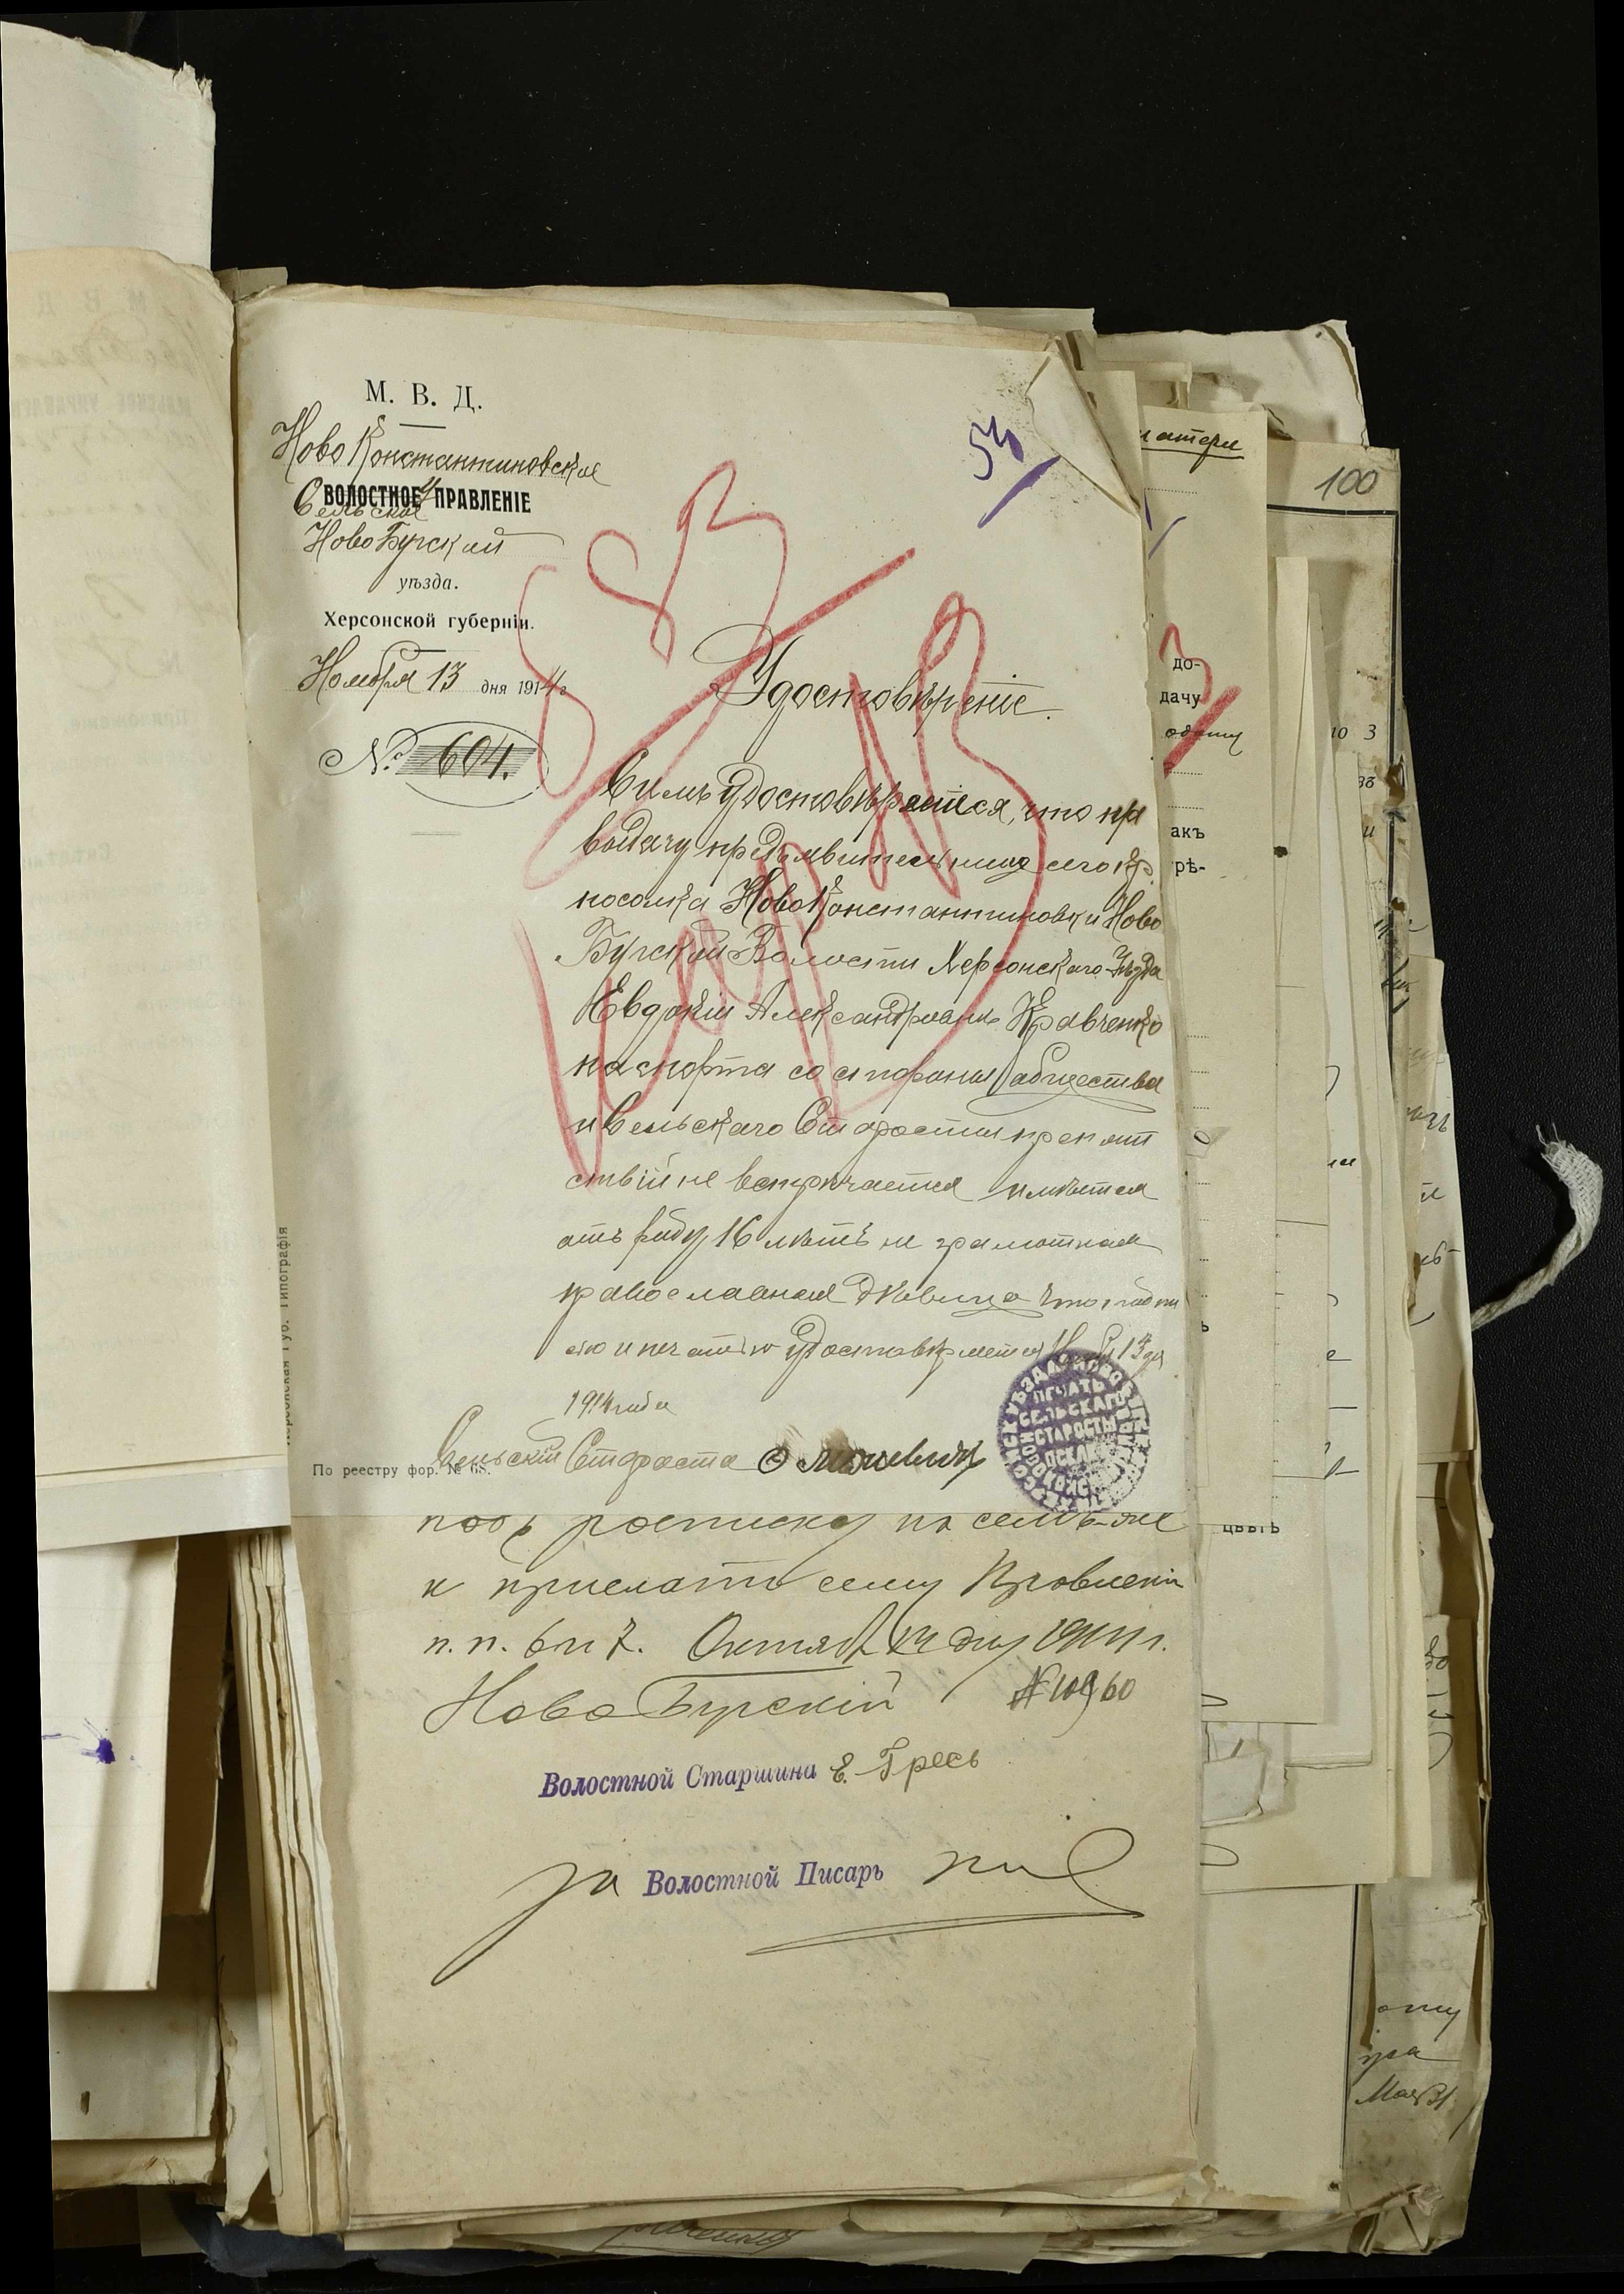 М. В. Д.
Ново Константиновское
Сельское
ВОЛОСТНОЕ УПРАВЛЕНІЕ
Ново Бугский
уѣзда.
Херсонской губерніи.
Ноября 13 дня 1914 г
№ 604.
54
Удостовѣреніе.
Симъ удостовѣряется, что на
выдачу предъявительнице сего кр.
посолка Ново Константиновки Ново
Бугской Волости Херсонскаго Уѣзда
Евдокіи Александровне Кравченко
паспорта со стороны общества
и Сельскаго Старосты препят
ствій не встречается имѣется
отъ роду 16 лѣтъ не грамотная
православная дѣвица что подпи
сью и печатью удостовѣряется Нояб 13 дня
1914 года
Сельскій Староста
ПЕЧАТЬ
СЕЛЬСКАГО
СТАРОСТЫ
По реестру фор. № 68.
Херсонская Губ. Типографія
подъ росписку
и прислать сему Правленію
п. п. 6 и 7. Октяб 14 дня 1914 г.
Ново Бугскій № 10960
Волостной Старшина Е. Гресь
за Волостной Писарь
матери
100
до-
дачу
акъ
рѣ-
цвѣтъ